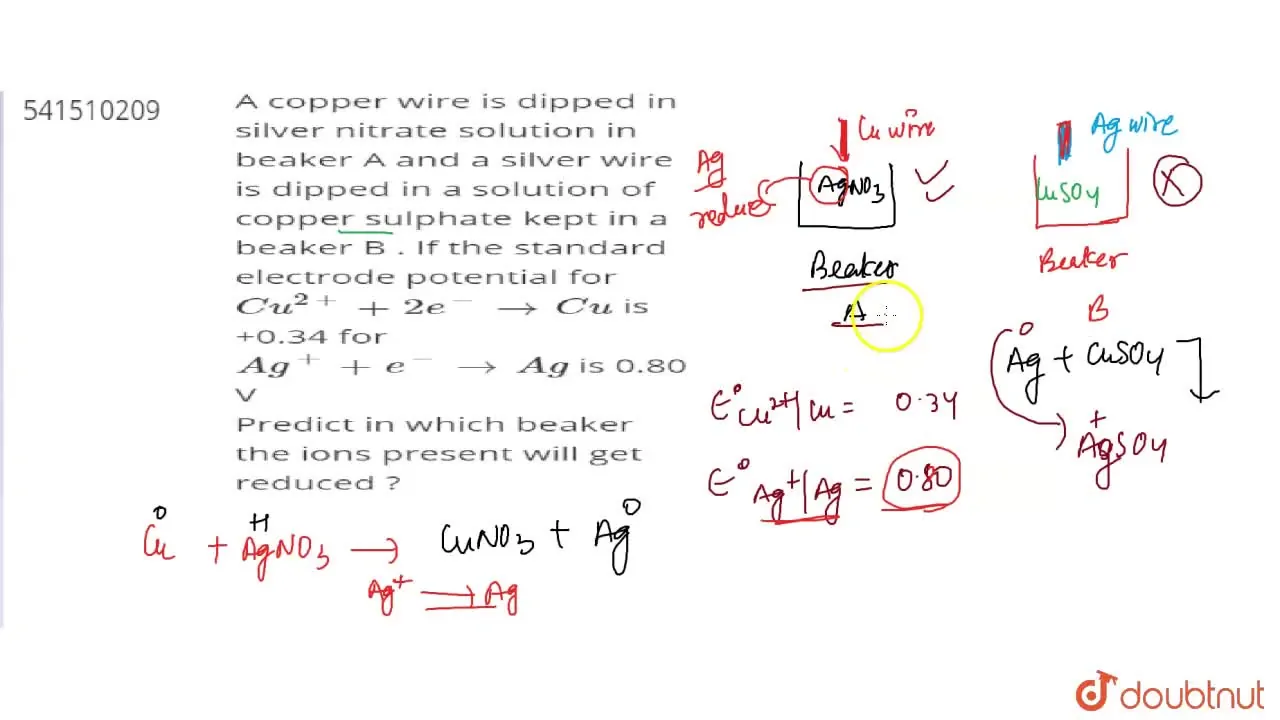 541510209
A copper wire is dipped in
silver nitrate solution in
beaker A and a silver wire
is dipped in a solution of
copper sulphate kept in a
beaker B . If the standard
electrode potential for
Cu²⁺ + 2e⁻ → Cu is
+0.34 for
Ag⁺ + e⁻ → Ag is 0.80
V
Predict in which beaker
the ions present will get
reduced ?
Cu wire
Ag
AgNO3
Beaker
A
Ag wire
CuSO4
X
Beaker
B
E° Cu²⁺/Cu = 0.34
E° Ag⁺/Ag = 0.80
0
Ag + CuSO4
+
AgSO4
0
Cu + AgNO3 → CuNO3 + Ag
0
Ag⁺ → Ag
doubtnut